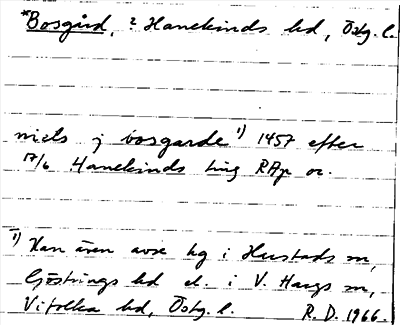 *Bosgård, ? Hanekinds hd, Östg. l.
niels j bosgarde 1) 1457 efter
17/6 Hanekinds ting RAp or.
1) Kan även avse hg i Hustads sn,
Göstrings hd el. i V. Hargs sn,
Vifolka hd, Östg. l. R. D. 1966.